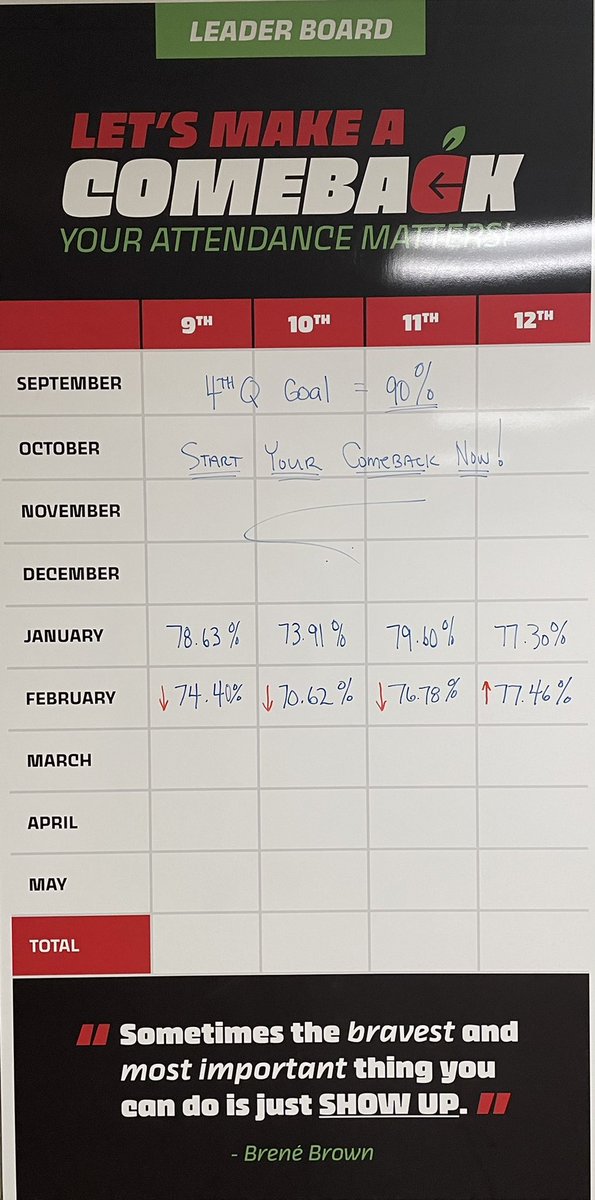 LEADER BOARD
LET'S MAKE A
COMEBACK
YOUR ATTENDANCE MATTERS!
9TH 10TH 11TH 12TH
SEPTEMBER 4TH Q GOAL = 90%
OCTOBER START YOUR COMEBACK NOW!
NOVEMBER
DECEMBER
JANUARY 78.63% 73.91% 79.60% 77.30%
FEBRUARY ↓74.40% ↓70.62% ↓76.78% ↑77.46%
MARCH
APRIL
MAY
TOTAL
"Sometimes the bravest and
most important thing you
can do is just SHOW UP."
- Brené Brown